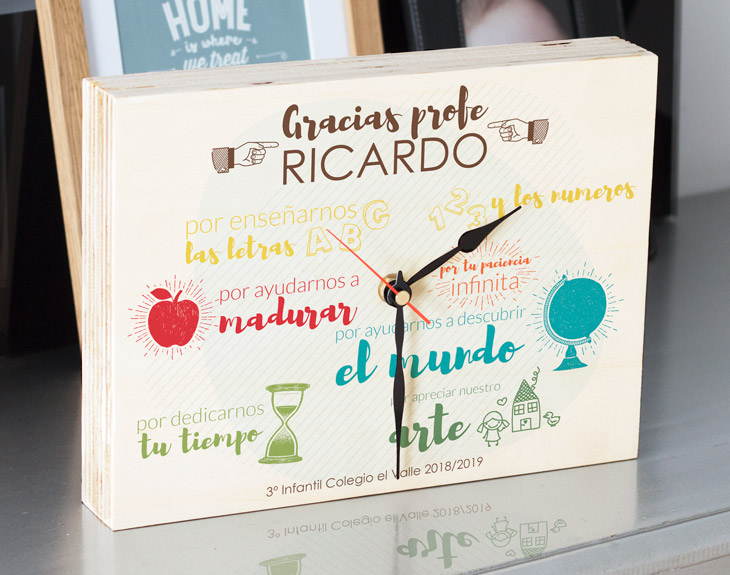 HOME
is where
we treat
Gracias profe
RICARDO
por enseñarnos
las letras A B C
1 2 3 y los numeros
por tu paciencia
infinita
por ayudarnos a
madurar
por ayudarnos a descubrir
el mundo
por dedicarnos
tu tiempo
por apreciar nuestro
arte
3º Infantil Colegio el Valle 2018/2019